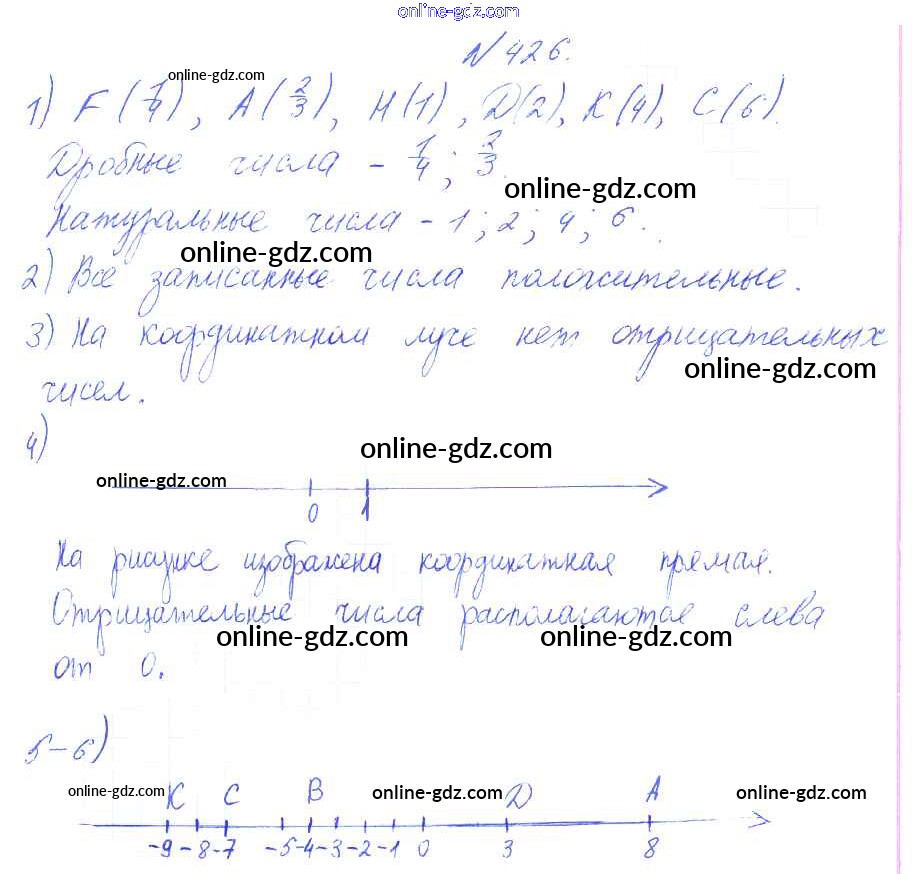 online-gdz.com
N 426.
online-gdz.com
1) F (1/4), A (2/3), M (1), D (2), K (4), C (6).
Дробные числа - 1/4; 2/3.
online-gdz.com
Натуральные числа - 1; 2; 4; 6.
online-gdz.com
2) Все записанные числа положительные.
3) На координатном луче нет отрицательных
online-gdz.com
чисел.
4)
online-gdz.com
online-gdz.com
0 1
На рисунке изображена координатная прямая.
Отрицательные числа располагаются слева
online-gdz.com online-gdz.com
от 0.
5-6)
online-gdz.com K C B online-gdz.com D A online-gdz.com
-9 -8 -7 -5 -4 -3 -2 -1 0 3 8